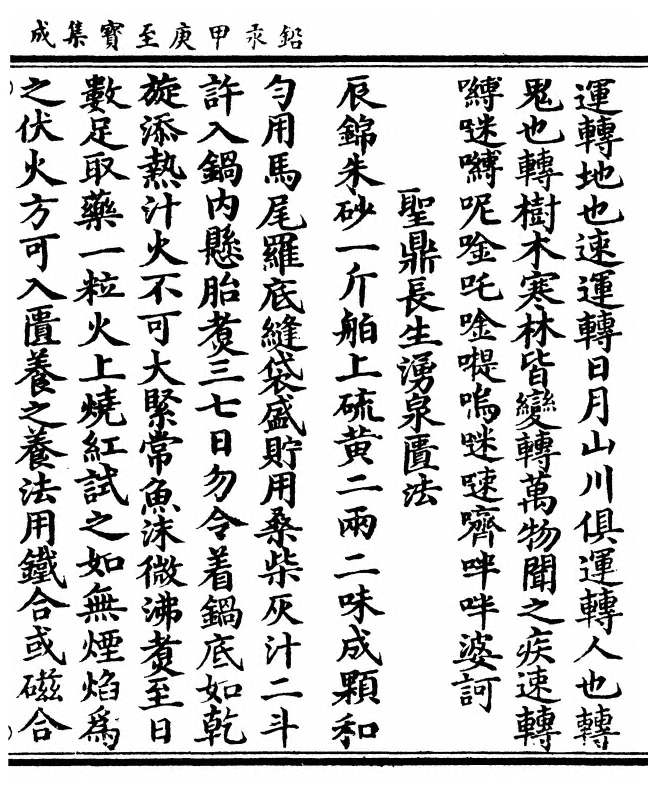 鉛汞甲庚至寶集成
運轉地也速運轉日月山川俱運轉人也轉
鬼也轉樹木寒林皆變轉萬物聞之疾速轉
嚩𠺗嚩呢唫吒唫㘆嗚𠺗㗛嚌哶哶婆訶
聖鼎長生湧泉匱法
辰錦朱砂一斤舶上硫黄二兩二味成顆和
勻用馬尾羅底縫袋盛貯用桑柴灰汁二斗
許入鍋内懸胎煑三七日勿令着鍋底如乾
旋添熱汁火不可大緊常魚沫微沸煑至日
數足取藥一粒火上燒紅試之如無煙焰爲
之伏火方可入匱養之養法用鐵合或磁合